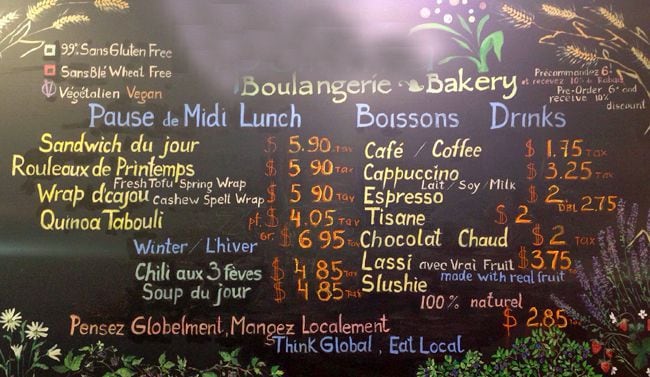 99% Sans Gluten Free
Sans Blé Wheat Free
Végétalien Vegan
Boulangerie Bakery
Précommandez 6+
et recevez 10% Rabais
Pre-Order 6+ and
receive 10%
discount
Pause de Midi Lunch
Boissons Drinks
Sandwich du jour $ 5.90 Tax
Rouleaux de Printemps $ 5 90 Tax
Fresh Tofu Spring Wrap
Wrap d'cajou Cashew Spelt Wrap $ 5 90 Tax
Quinoa Tabouli pt. $ 4.05 Tax
gr. $ 6 95 Tax
Winter / L'hiver
Chili aux 3 fèves $ 4 85 Tax
Soup du jour $ 4 85 Tax
Café / Coffee $ 1.75 Tax
Cappuccino $ 3.25 Tax
Lait / Soy / Milk
Espresso $ 2 DBL 2.75
Tisane $ 2
Chocolat Chaud $ 2 Tax
Lassi avec Vrai Fruit $ 375
made with real fruit
Slushie
100% naturel
$ 2.85 Tax
Pensez Globelment, Mangez Localement
Think Global, Eat Local